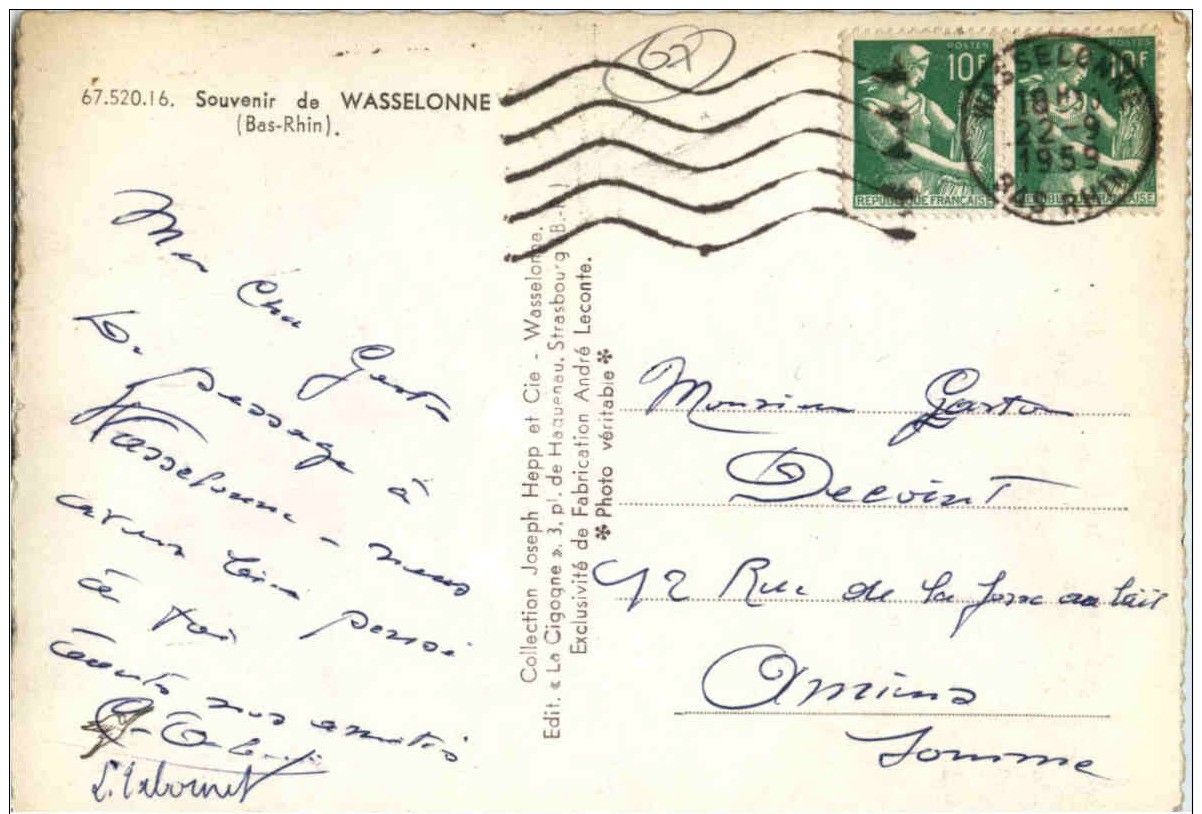 67.520.16. Souvenir de WASSELONNE
(Bas-Rhin).
67
POSTES
10F
REPUBLIQUE FRANÇAISE
10F
REPUBLIQUE FRANÇAISE
WASSELONNE
18H
22-9
1959
BAS RHIN
Mon Cher Gaston
De passage à
Wasselonne - nous
avons bien pensé
à toi
toutes nos amitiés
Collection Joseph Hepp et Cie - Wasselonne.
Edit. « La Cigogne ». 3, pl. de Haguenau, Strasbourg (B.-)
Exclusivité de Fabrication André Leconte.
✻ Photo véritable ✻
Monsieur Gaston
Decoint
42 Rue de la
Amiens
Somme